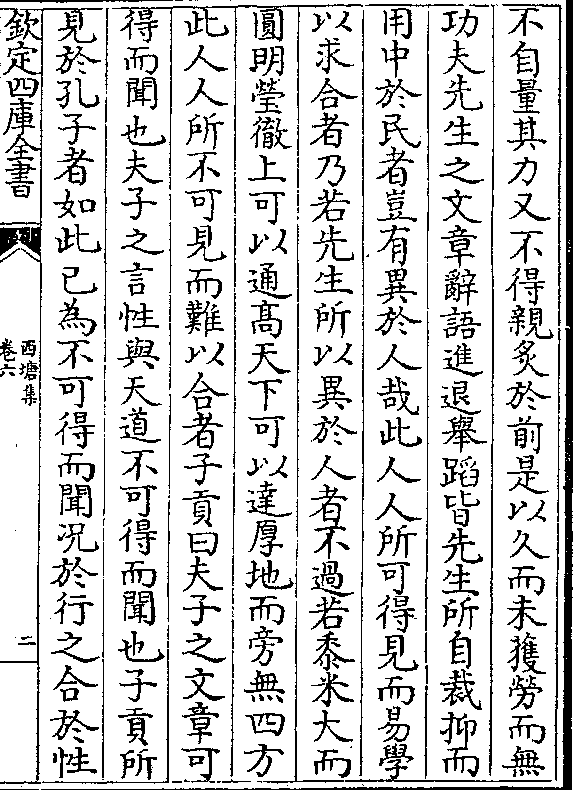 不自量其力又不得親炙於前是以久而未獲勞而無
功夫先生之文章辭語進退舉蹈皆先生所自裁抑而
用中於民者豈有異於人哉此人人所可得見而易學
以求合者乃若先生所以異於人者不過若黍米大而
圓明瑩徹上可以通高天下可以達厚地而旁無四方
此人人所不可見而難以合者子貢曰夫子之文章可
得而聞也夫子之言性與天道不可得而聞也子貢所
見於孔子者如此已為不可得而聞况於行之合於性
欽定四庫全書
西塘集
卷六
二